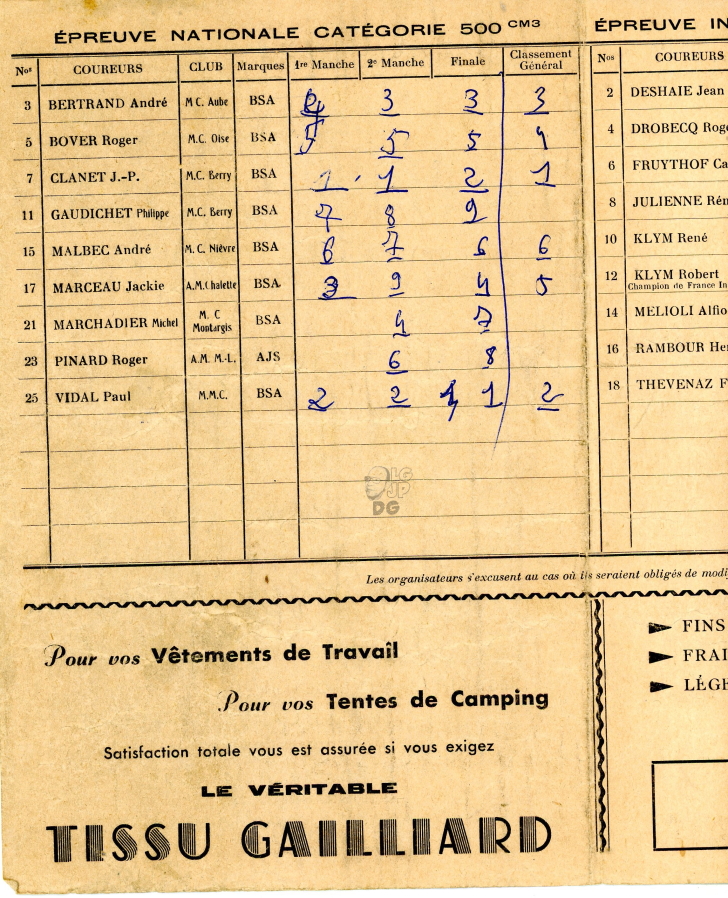 ÉPREUVE NATIONALE CATÉGORIE 500 CM3
Nos COUREURS CLUB Marques 1re Manche 2e Manche Finale Classement Général
3 BERTRAND André M C. Aube BSA 4 3 3 3
5 BOVER Roger M.C. Oise BSA 5 5 5 4
7 CLANET J.-P. M.C. Berry BSA 1 1 2 1
11 GAUDICHET Philippe M.C. Berry BSA 7 8 9
15 MALBEC André M. C. Nièvre BSA 6 7 6 6
17 MARCEAU Jackie A.M.Chalette BSA 3 9 4 5
21 MARCHADIER Michel M. C Montargis BSA 4 7
23 PINARD Roger A.M. M.-L. AJS 6 8
25 VIDAL Paul M.M.C. BSA 2 2 1 2
LG
JP
DG
ÉPREUVE IN
Nos COUREURS
2 DESHAIE Jean
4 DROBECQ Roge
6 FRUYTHOF Ca
8 JULIENNE Rém
10 KLYM René
12 KLYM Robert
Champion de France In
14 MELIOLI Alfio
16 RAMBOUR Hen
18 THEVENAZ F
Les organisateurs s'excusent au cas où ils seraient obligés de modi
Pour vos Vêtements de Travail
Pour vos Tentes de Camping
Satisfaction totale vous est assurée si vous exigez
LE VÉRITABLE
TISSU GAILLIARD
FINS
FRAI
LÉGE